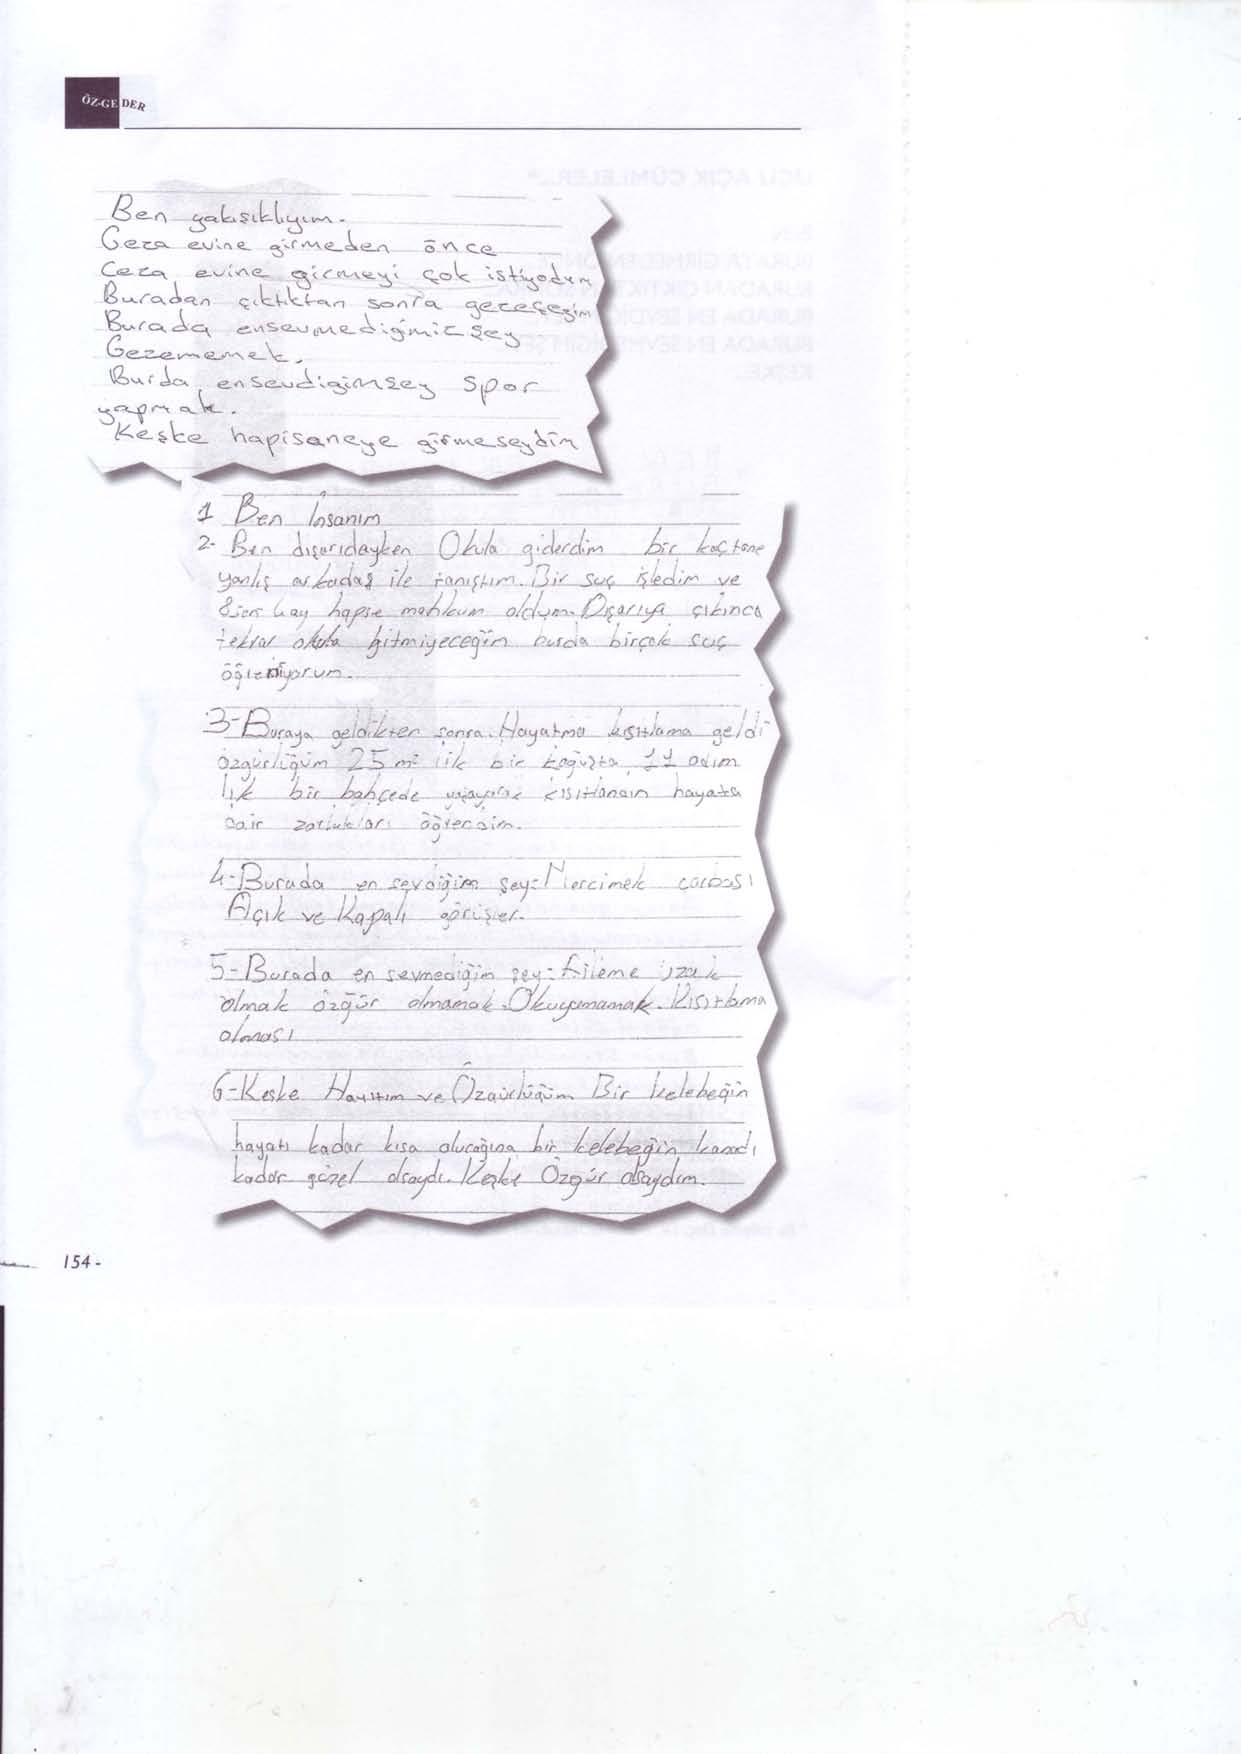 ÖZ-GE DER
Ben yakışıklıyım.
Ceza evine girmeden önce
Ceza evine girmeyi çok istiyodum
Buradan çıktıktan sonra gezeceğim
Burada ensevmediğimiz şey
Gezememek.
Burda ensevdigimşey spor
yapmak.
Keşke hapisaneye girmeseydim
1 Ben İnsanım
2- Ben dışarıdayken Okula giderdim bir kaçtane
yanlış arkadaş ile tanıştım. Bir suç işledim ve
hapse mahkum oldum. Dışarıya çıkınca
tekrar okula gitmiyeceğim burda birçok suç
öğreniyorum.
3- Buraya geldikten sonra. Hayatıma kısıtlama geldi
özgürlüğüm 25 m² lik bir koğuşta, 11 adım
lık bir bahçede yaşayarak kısıtlandım hayata
dair zorlukları öğrendim.
4- Burada en sevdiğim şey: Mercimek çorbası
Açık ve Kapalı görüşler.
5- Burada en sevmediğim şey: Aileme uzak
olmak özgür olmamak. Okuyamamak. Kısıtlama
olması
6- Keşke Hayatım ve Özgürlüğüm Bir kelebeğin
hayatı kadar kısa olucağına bir kelebeğin kanadı
kadar güzel olsaydı. Keşke Özgür olsaydım.
154 -